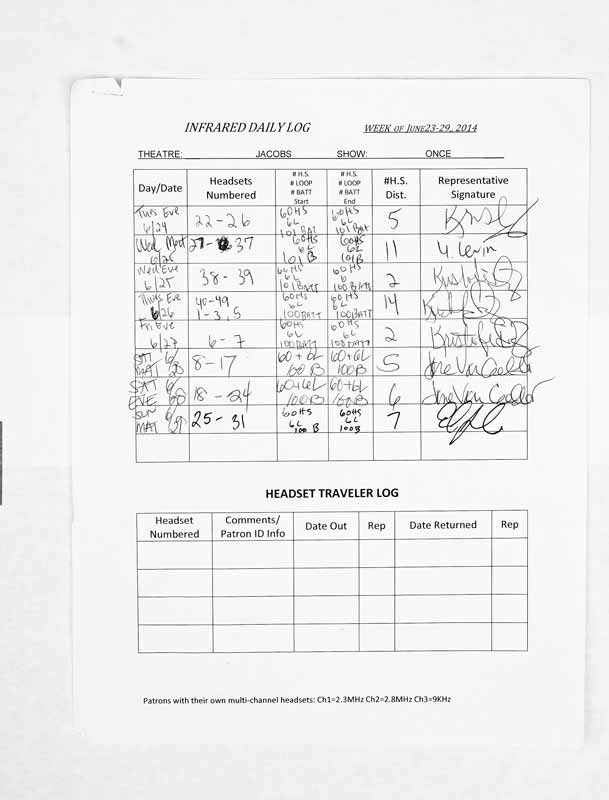 INFRARED DAILY LOG WEEK OF JUNE23-29, 2014
THEATRE: JACOBS SHOW: ONCE
Day/Date Headsets Numbered # H.S. # LOOP # BATT Start # H.S. # LOOP # BATT End #H.S. Dist. Representative Signature
Tues Eve 6/24 22-26 60HS 6L 101 BAT 60HS 6L 101 BAT 5
Wed Mat 6/25 27- 37 60HS 6L 101 B 60HS 6L 101B 11 Y. Levin
Wed Eve 6/25 38-39 60HS 6L 101BATT 60 HS 6 100BATT 2
Thurs Eve 6/26 40-49 1-3, 5 60HS 6L 100BATT 60HS 6L 100BATT 14
Fri Eve 6/27 6-7 60HS 6L 100BATT 60HS 6L 100BATT 2
SAT MAT 6/28 8-17 60+6L 100B 60+6L 100B 5
SAT EVE 18-24 60+6L 100B 60+6L 100B 6
SUN MAT 25-31 60HS 6L 100 B 60HS 6L 100B 7
HEADSET TRAVELER LOG
Headset Numbered Comments/ Patron ID Info Date Out Rep Date Returned Rep
Patrons with their own multi-channel headsets: Ch1=2.3MHz Ch2=2.8MHz Ch3=9KHz